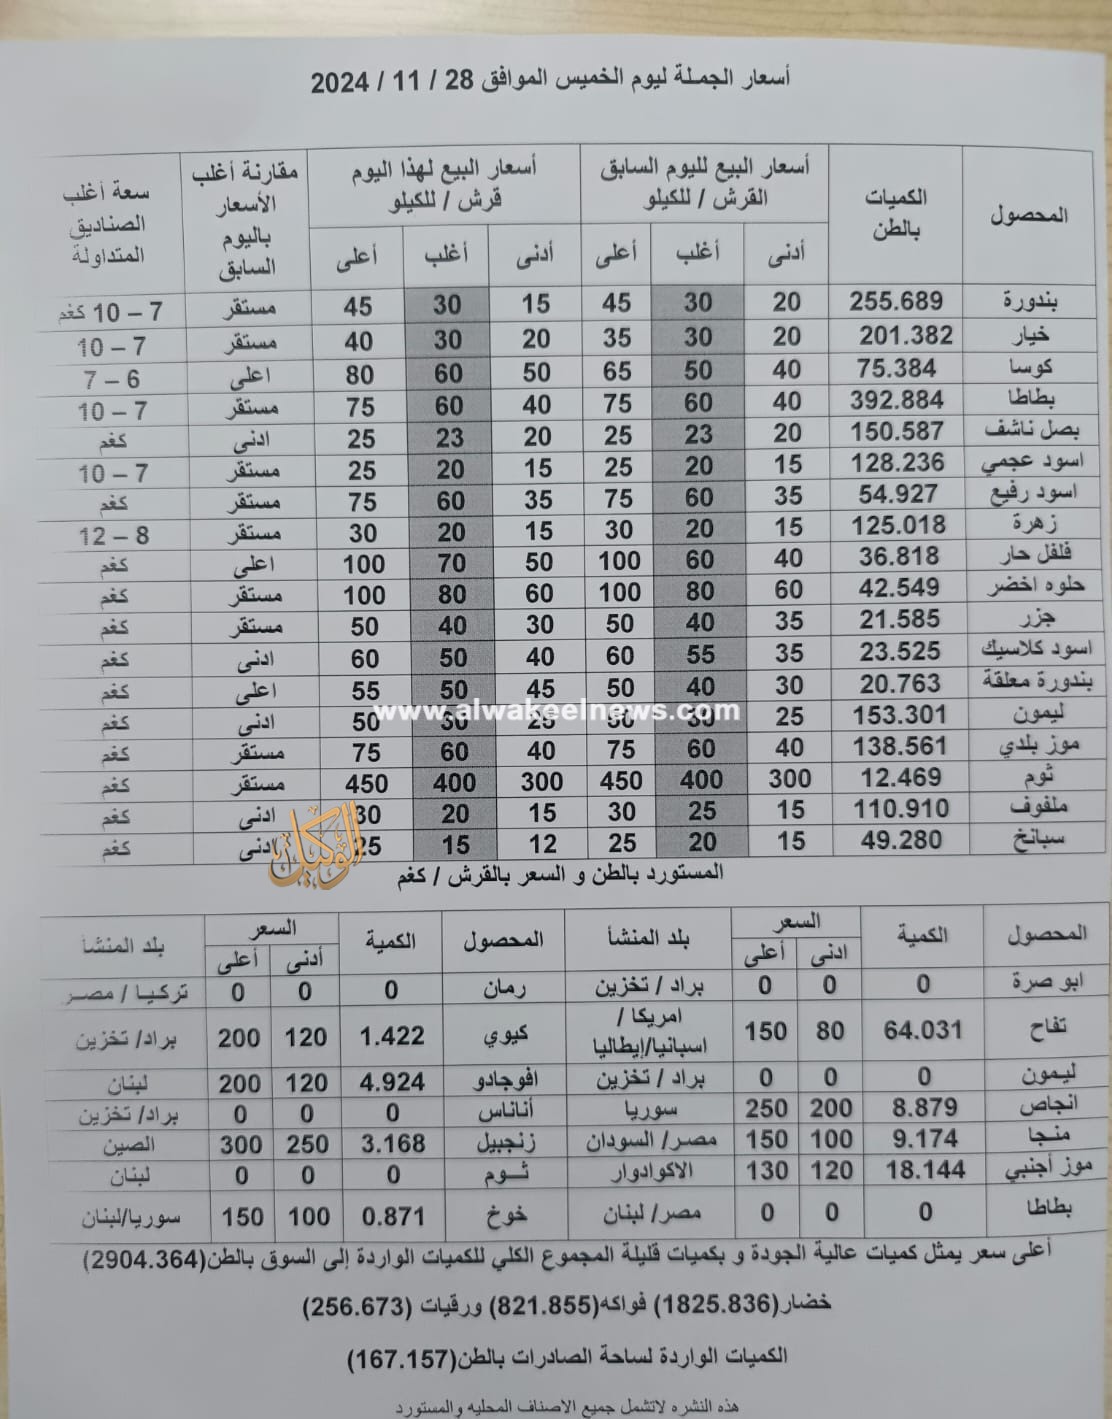 أسعار الجملة ليوم الخميس الموافق 28 / 11 / 2024
المحصول | الكميات بالطن | أسعار البيع لليوم السابق القرش / للكيلو | أسعار البيع لهذا اليوم قرش / للكيلو | مقارنة أغلب الأسعار باليوم السابق | سعة أغلب الصناديق المتداولة
أدنى | أغلب | أعلى | أدنى | أغلب | أعلى
بندورة | 255.689 | 20 | 30 | 45 | 15 | 30 | 45 | مستقر | 7 – 10 كغم
خيار | 201.382 | 20 | 30 | 35 | 20 | 30 | 40 | مستقر | 7 – 10
كوسا | 75.384 | 40 | 50 | 65 | 50 | 60 | 80 | اعلى | 6 – 7
بطاطا | 392.884 | 40 | 60 | 75 | 40 | 60 | 75 | مستقر | 7 – 10
بصل ناشف | 150.587 | 20 | 23 | 25 | 20 | 23 | 25 | ادنى | كغم
اسود عجمي | 128.236 | 15 | 20 | 25 | 15 | 20 | 25 | مستقر | 7 – 10
اسود رفيع | 54.927 | 35 | 60 | 75 | 35 | 60 | 75 | مستقر | كغم
زهرة | 125.018 | 15 | 20 | 30 | 15 | 20 | 30 | مستقر | 8 – 12
فلفل حار | 36.818 | 40 | 60 | 100 | 50 | 70 | 100 | اعلى | كغم
حلوه اخضر | 42.549 | 60 | 80 | 100 | 60 | 80 | 100 | مستقر | كغم
جزر | 21.585 | 35 | 40 | 50 | 30 | 40 | 50 | مستقر | كغم
اسود كلاسيك | 23.525 | 35 | 55 | 60 | 40 | 50 | 60 | ادنى | كغم
بندورة معلقة | 20.763 | 30 | 40 | 50 | 45 | 50 | 55 | اعلى | كغم
www.alwakeelnews.com
ليمون | 153.301 | 25 | 25 | 50 | ادنى | كغم
موز بلدي | 138.561 | 40 | 60 | 75 | 40 | 60 | 75 | مستقر | كغم
ثوم | 12.469 | 300 | 400 | 450 | 300 | 400 | 450 | مستقر | كغم
ملفوف | 110.910 | 15 | 25 | 30 | 15 | 20 | 30 | ادنى | كغم
سبانخ | 49.280 | 15 | 20 | 25 | 12 | 15 | 25 | ادنى | كغم
الوكيل
المستورد بالطن و السعر بالقرش / كغم
المحصول | الكمية | السعر | بلد المنشأ | المحصول | الكمية | السعر | بلد المنشأ
ادنى | أعلى | أدنى | أعلى
ابو صرة | 0 | 0 | 0 | براد / تخزين | رمان | 0 | 0 | 0 | تركيا / مصر
تفاح | 64.031 | 80 | 150 | امريكا / اسبانيا/إيطاليا | كيوي | 1.422 | 120 | 200 | براد/ تخزين
ليمون | 0 | 0 | 0 | براد / تخزين | افوجادو | 4.924 | 120 | 200 | لبنان
انجاص | 8.879 | 200 | 250 | سوريا | أناناس | 0 | 0 | 0 | براد/ تخزين
منجا | 9.174 | 100 | 150 | مصر/ السودان | زنجبيل | 3.168 | 250 | 300 | الصين
موز أجنبي | 18.144 | 120 | 130 | الاكوادوار | ثوم | 0 | 0 | 0 | لبنان
بطاطا | 0 | 0 | 0 | مصر/ لبنان | خوخ | 0.871 | 100 | 150 | سوريا/لبنان
أعلى سعر يمثل كميات عالية الجودة و بكميات قليلة المجموع الكلي للكميات الواردة إلى السوق بالطن(2904.364)
خضار(1825.836) فواكه(821.855) ورقيات (256.673)
الكميات الواردة لساحة الصادرات بالطن(167.157)
هذه النشره لاتشمل جميع الاصناف المحليه والمستورد